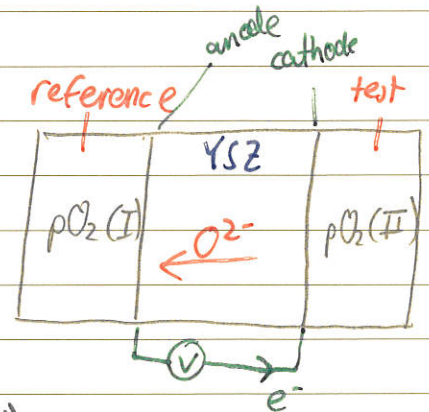 anode
cathode
reference
test
YSZ
pO₂(I)
O²⁻
pO₂(II)
V
e⁻